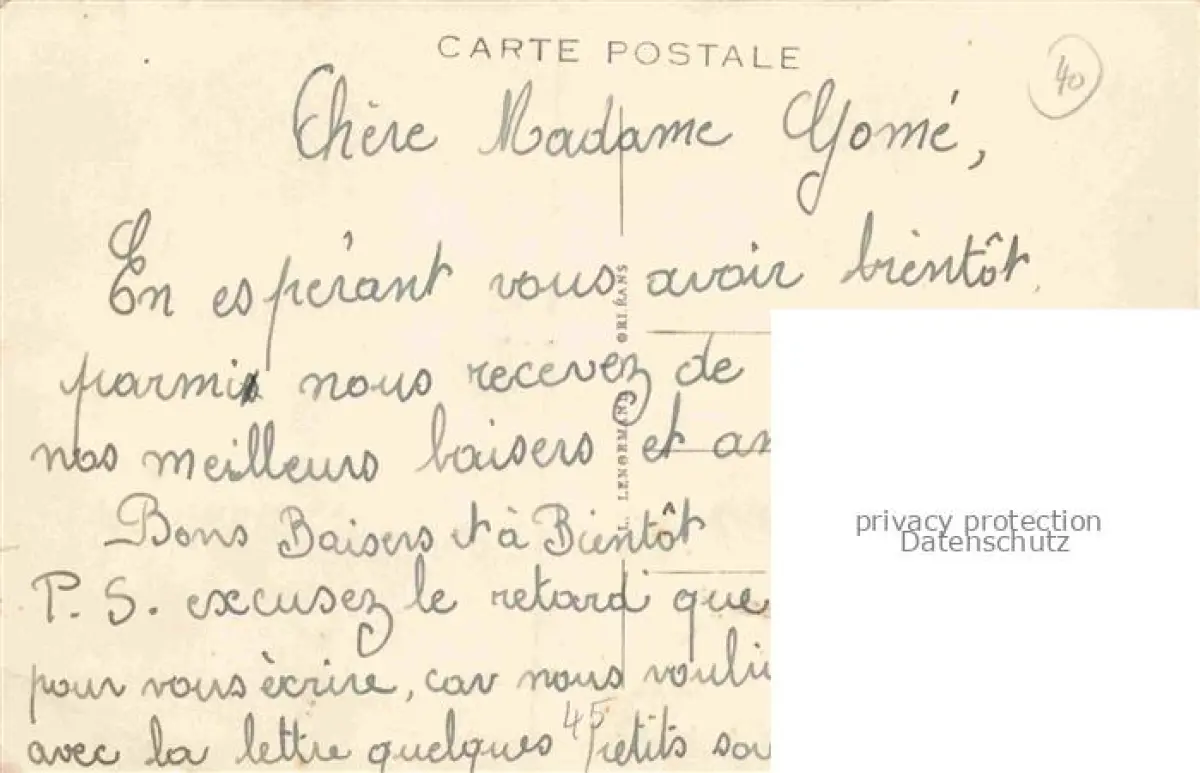 CARTE POSTALE
40
Chère Madame Yomé,
En espérant vous avoir bientôt
parmis nous recevez de
nos meilleurs baisers et
Bons Baisers et à Bientôt
P. S. excusez le retard que
pour vous ècrire, car nous
avec la lettre quelques petits
45
L. LENORMAND ORLÉANS
privacy protection
Datenschutz